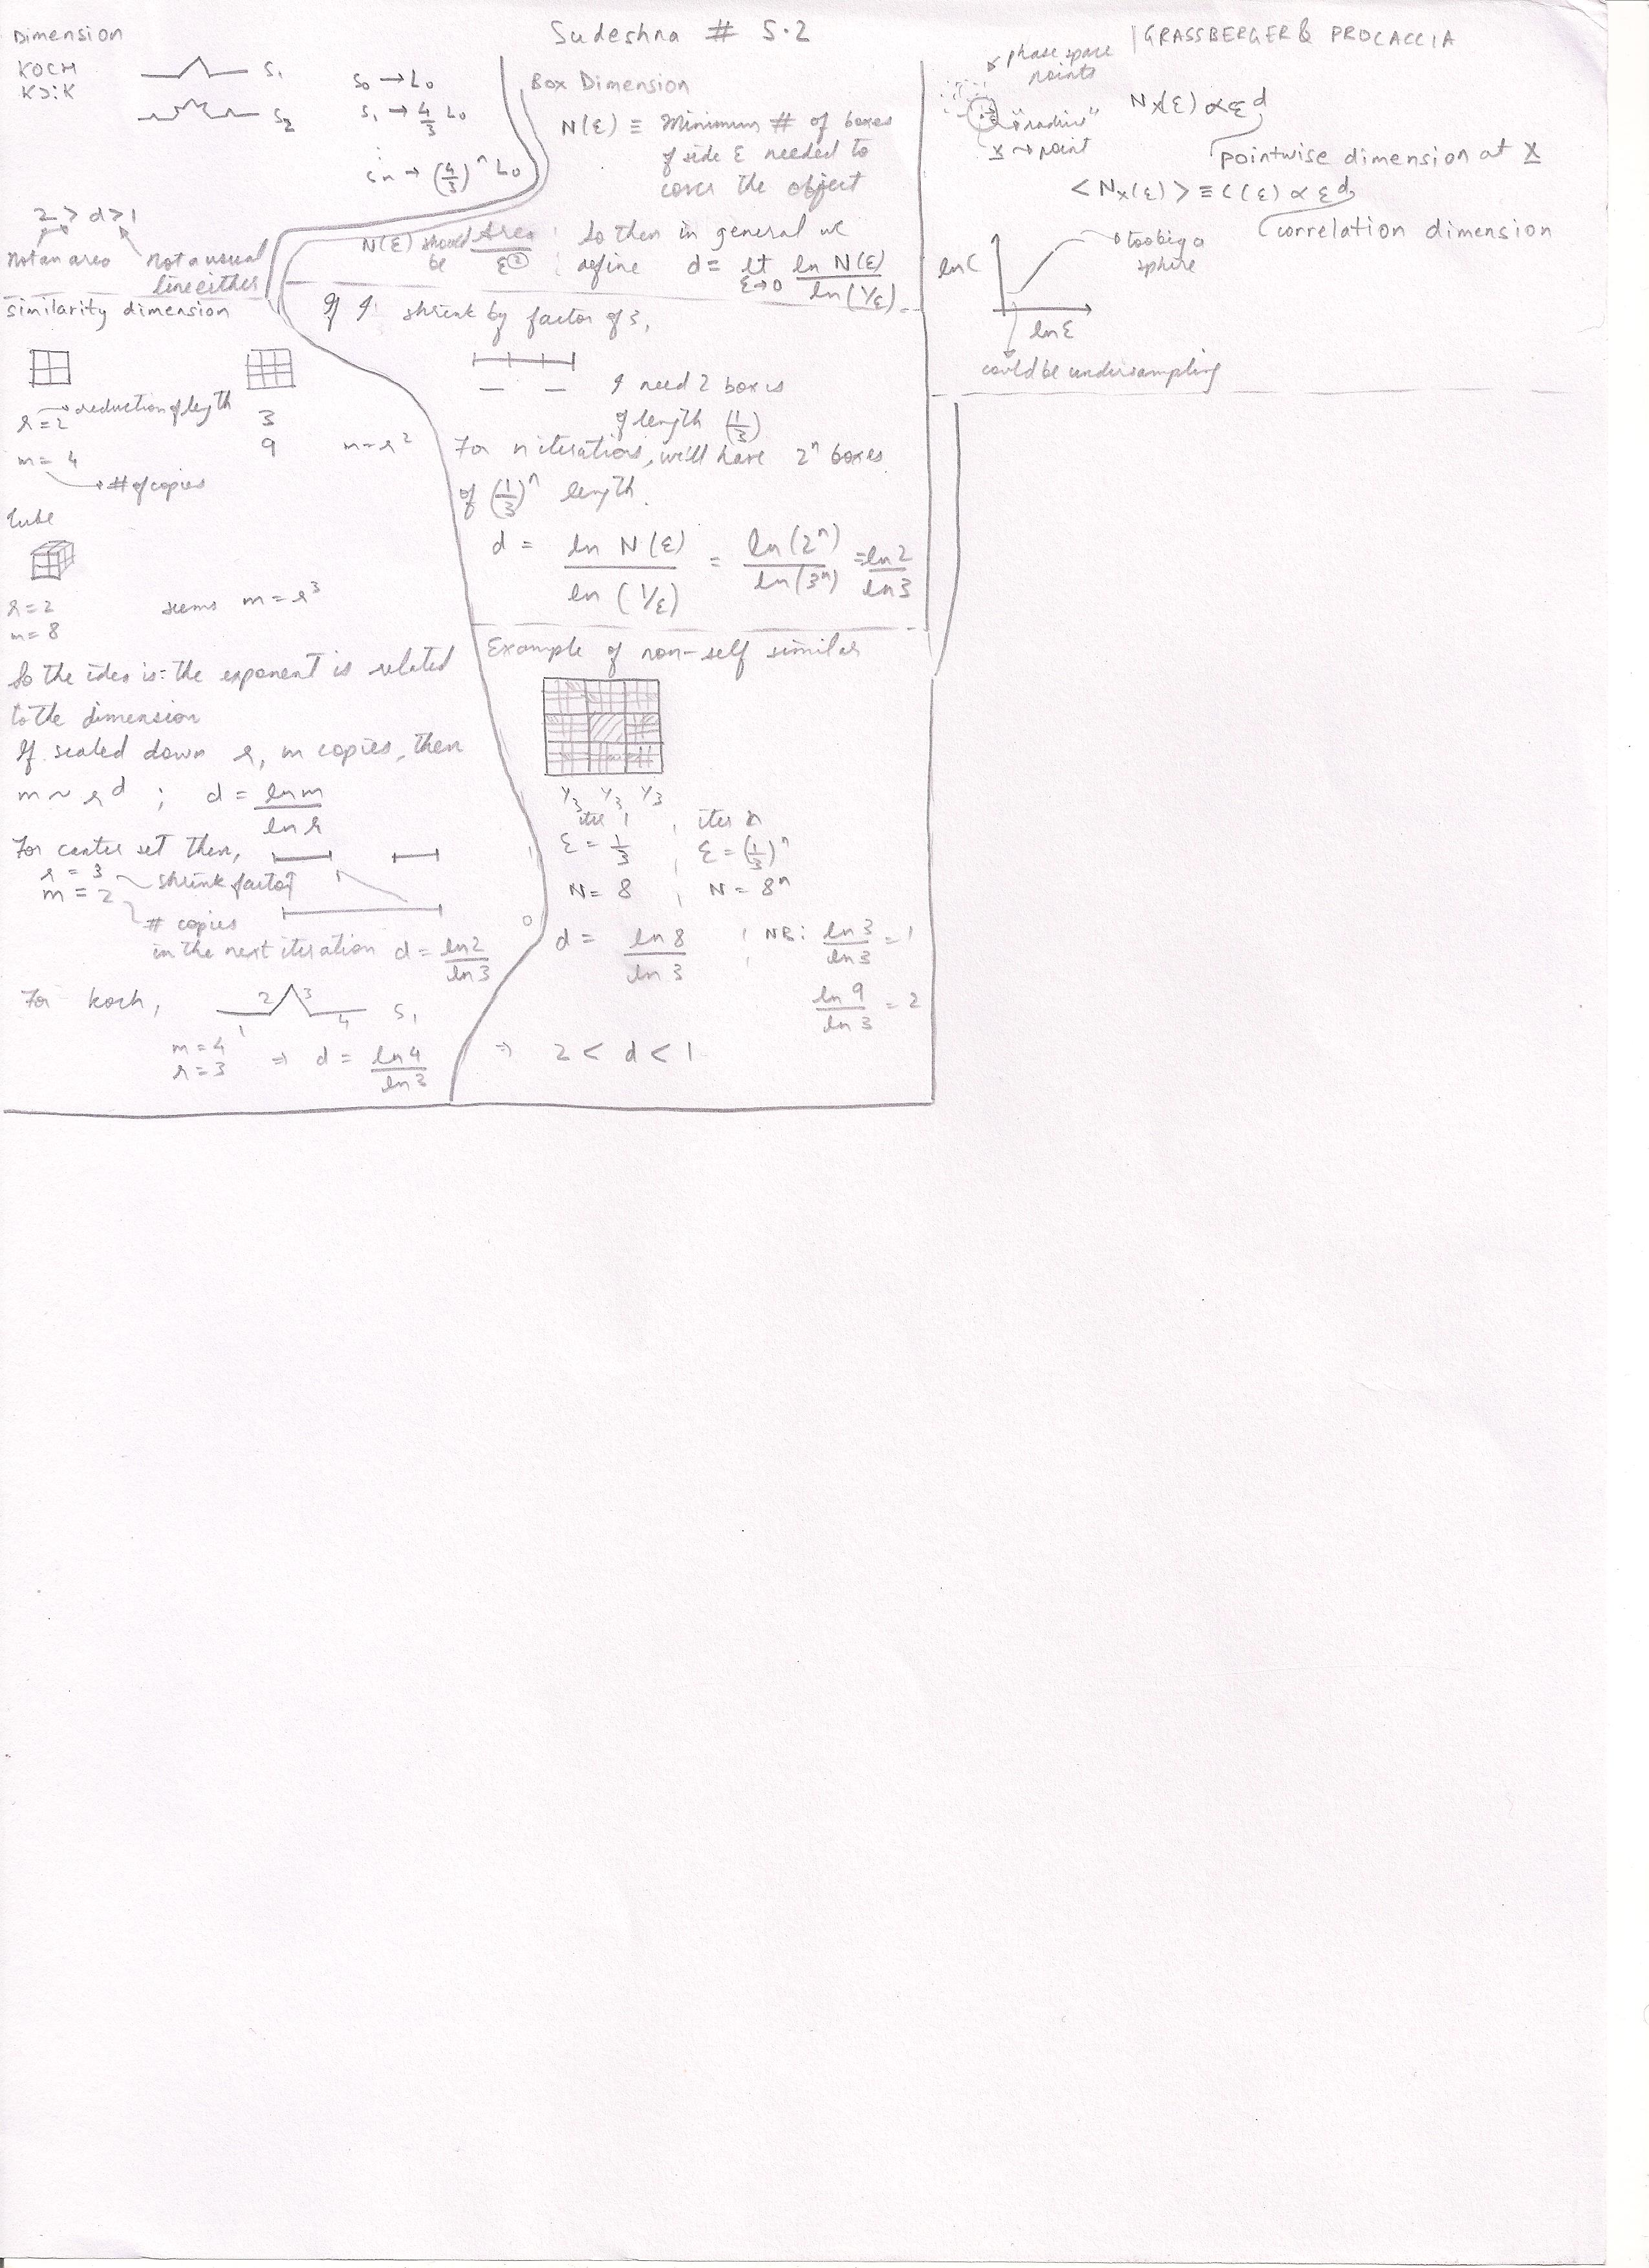 Sudeshna # 5.2
Dimension
KOCH
S₁
S₂
S₀ → L₀
S₁ → 4/3 L₀
Sn → (4/3)ⁿ L₀
2 > d > 1
Not an area
Not a usual
line either
similarity dimension
r = 2 → reduction of length
m = 4
→ # of copies
3
9
m = r²
Cube
r = 2
m = 8
seems m = r³
So the idea is: the exponent is related
to the dimension
If scaled down r, m copies, then
m ~ r^d ; d = ln m / ln r
For cantor set then,
r = 3 shrink factor
m = 2
# copies
in the next iteration d = ln 2 / ln 3
For koch,
1 2 3 4 S₁
m = 4
r = 3
⇒ d = ln 4 / ln 3
Box Dimension
N(ε) ≡ Minimum # of boxes
of side ε needed to
cover the object
N(ε) should be Area / ε²
So then in general we
define d = lt ε→0 ln N(ε) / ln(1/ε)
If I shrink by factor of 3,
I need 2 boxes
of length (1/3)
For n iterations, we'll have 2ⁿ boxes
of (1/3)ⁿ length.
d = ln N(ε) / ln(1/ε) = ln(2ⁿ) / ln(3ⁿ) = ln 2 / ln 3
Example of non-self similar
1/3 1/3 1/3
iter 1, iter n
ε = 1/3, ε = (1/3)ⁿ
N = 8, N = 8ⁿ
d = ln 8 / ln 3
NB: ln 3 / ln 3 = 1
ln 9 / ln 3 = 2
⇒ 2 < d < 1
GRASSBERGER & PROCACCIA
phase space
points
"radius"
x → point
Nx(ε) ∝ ε^d
pointwise dimension at x
<Nx(ε)> ≡ C(ε) ∝ ε^d
correlation dimension
ln C
too big a
sphere
ln ε
could be undersampling